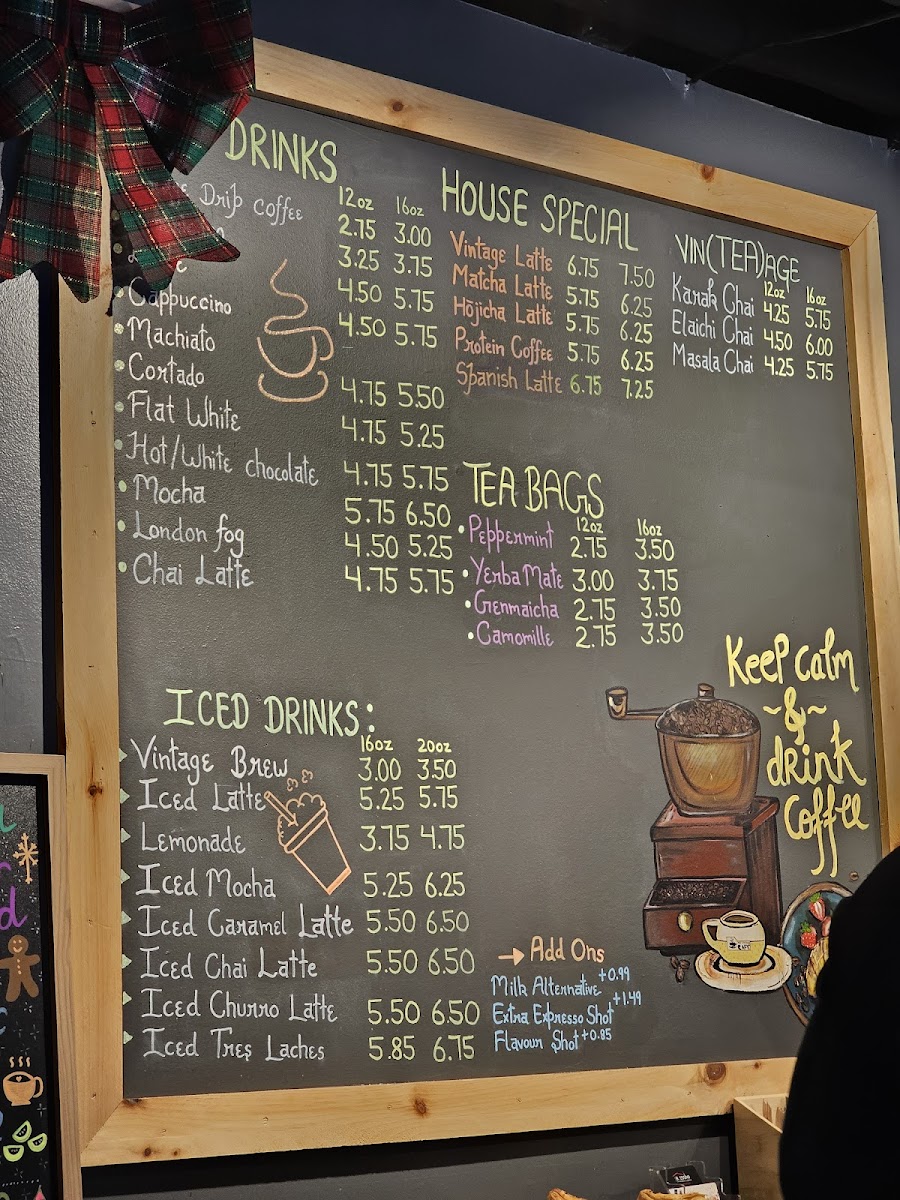 DRINKS
Drip coffee 12oz 16oz
2.75 3.00
3.25 3.75
4.50 5.75
Cappuccino 4.50 5.75
Machiato
Cortado 4.75 5.50
Flat White 4.75 5.25
Hot/White chocolate 4.75 5.75
Mocha 5.75 6.50
London fog 4.50 5.25
Chai Latte 4.75 5.75
HOUSE SPECIAL
Vintage Latte 6.75 7.50
Matcha Latte 5.75 6.25
Hōjicha Latte 5.75 6.25
Protein Coffee 5.75 6.25
Spanish Latte 6.75 7.25
VIN(TEA)AGE
12oz 16oz
Karak Chai 4.25 5.75
Elaichi Chai 4.50 6.00
Masala Chai 4.25 5.75
TEA BAGS
12oz 16oz
Peppermint 2.75 3.50
Yerba Mate 3.00 3.75
Genmaicha 2.75 3.50
Camomille 2.75 3.50
ICED DRINKS:
16oz 20oz
Vintage Brew 3.00 3.50
Iced Latte 5.25 5.75
Lemonade 3.75 4.75
Iced Mocha 5.25 6.25
Iced Caramel Latte 5.50 6.50
Iced Chai Latte 5.50 6.50
Iced Churro Latte 5.50 6.50
Iced Tres Laches 5.85 6.75
→ Add Ons
Milk Alternative +0.99
Extra Expresso Shot +1.49
Flavour Shot +0.85
Keep calm
~&~
drink
coffee